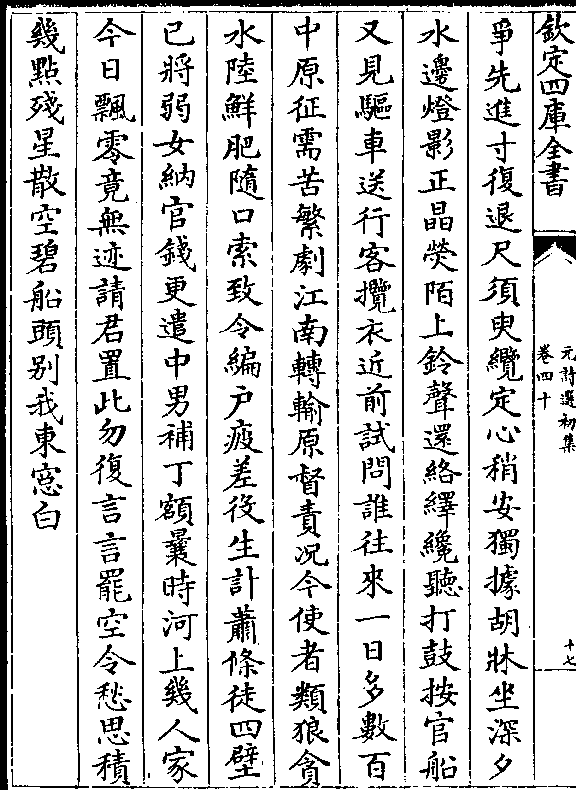 欽定四庫全書
元詩選初集
卷四十
十七
爭先進寸復退尺須臾纜定心稍安獨據胡牀坐深夕
水邊燈影正晶熒陌上鈴聲還絡繹纔聽打鼓按官船
又見驅車送行客攬衣近前試問誰往來一日多數百
中原征需苦繁劇江南轉輸原督責况今使者類狼貪
水陸鮮肥隨口索致令編户疲差役生計蕭條徒四壁
已將弱女納官錢更遣中男補丁額曩時河上幾人家
今日飄零竟無迹請君置此勿復言言罷空令愁思積
幾點殘星散空碧船頭别我東窓白